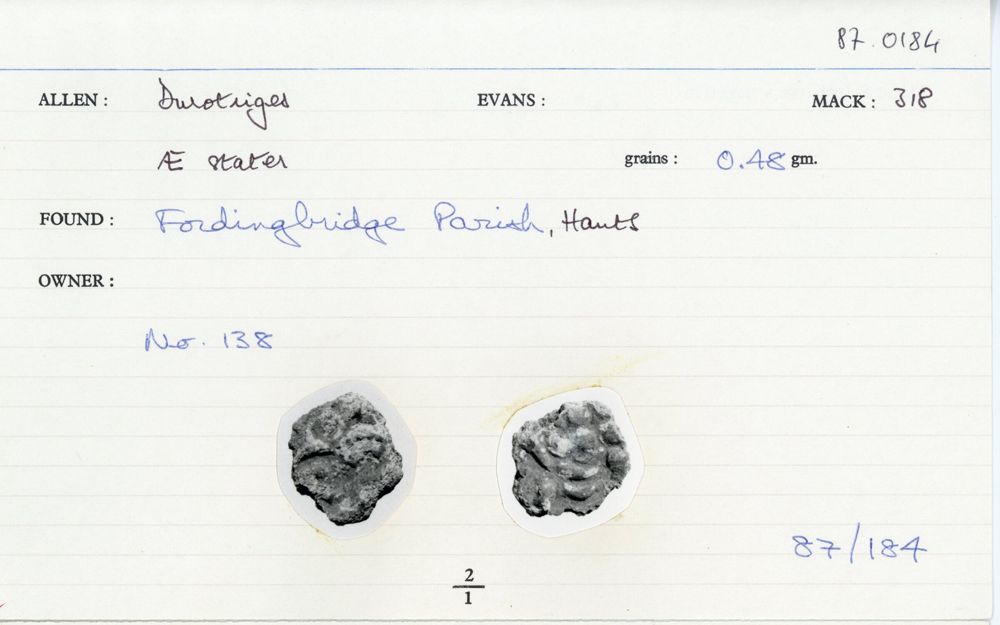 87.0184
ALLEN : Durotriges EVANS : MACK : 318
Æ stater grains : 0.48 gm.
FOUND : Fordingbridge Parish, Hants
OWNER :
No. 138
87/184
2
1